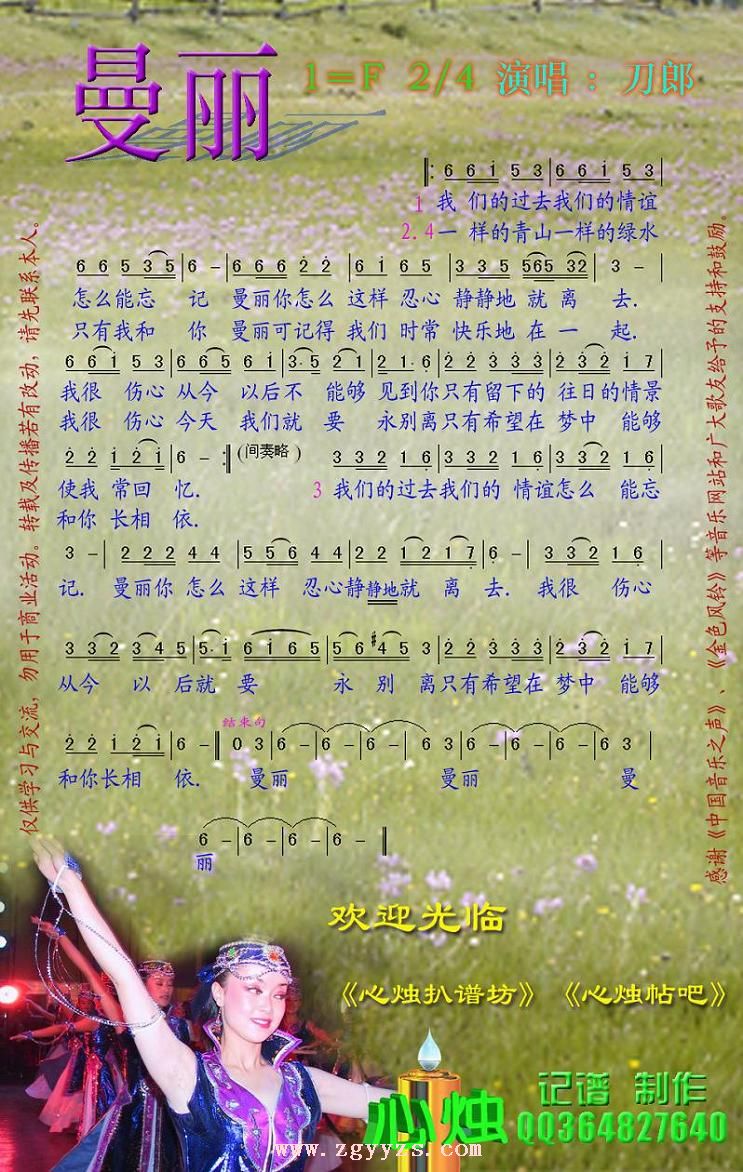 曼丽 1=F 2/4 演唱：刀郎
6 6 i 5 3 | 6 6 i 5 3 |
1 我 们的过去我们的情谊
2.4一 样的青山一样的绿水
6 6 5 3 5 | 6 - | 6 6 6 2 2 | 6 i 6 5 | 3 3 5 565 32 | 3 - |
怎么能忘 记 曼丽你怎么 这样 忍心 静静地 就 离 去.
只有我和 你 曼丽可记得 我们 时常 快乐地 在 一 起.
6 6 i 5 3 | 6 6 5 6 i | 3· 5 2 1 | 2 1· 6 | 2 2 3 3 3 | 2 3 2 i 7 |
我很 伤心 从今 以后不 能够 见到你只有留下的 往日的情景
我很 伤心 今天 我们就 要 永别离只有希望在 梦中 能够
2 2 i 2 i | 6 - :‖ (间奏略) 3 3 2 1 6 | 3 3 2 1 6 | 3 3 2 1 6 |
使我 常回 忆. 3 我们的过去我们的 情谊怎么 能忘
和你 长相 依.
3 - | 2 2 2 4 4 | 5 5 6 4 4 | 2 2 1 2 1 7 | 6 - | 3 3 2 1 6 |
记. 曼丽你 怎么 这样 忍心静静地就 离 去. 我很 伤心
3 3 2 3 4 5 | 5· i | 6 i 6 5 | 5 6 #4 5 3 | 2 2 3 3 3 | 2 3 2 i 7 |
从今 以 后就 要 永 别 离只有希望在 梦中 能够
结束句
2 2 i 2 i | 6 - ‖ 0 3 | 6 - | 6 - | 6 - | 6 - | 6 3 | 6 - | 6 - | 6 - | 6 3 |
和你长相 依. 曼丽 曼丽 曼
6 - | 6 - | 6 - | 6 - ‖
丽
仅供学习与交流，勿用于商业活动。转载及传播若有改动，请先联系本人。
感谢《中国音乐之声》、《金色风铃》等音乐网站和广大歌友给予的支持和鼓励.
欢迎光临
《心烛扒谱坊》 《心烛帖吧》
心烛 记谱 制作
QQ364827640
www.zgyyzs.com